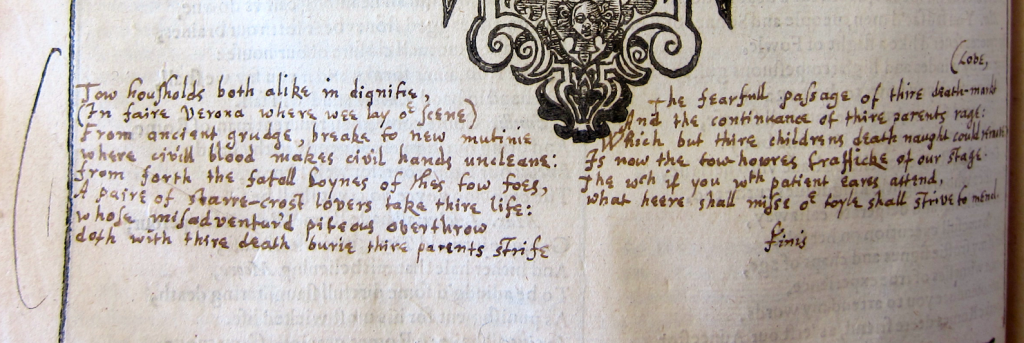 Tow housholds both alike in dignitie,
(In faire Verona where wee lay oͬ Scene)
From ancient grudge, breake to new mutinie
where civill blood makes civil hands uncleane:
From forth the fatall Loynes of thes tow foes,
A paire of starre-crost lovers take thire life:
whose misadventur'd piteous overthrow
doth with thire death burie thire parents strife
(Love,
The fearfull passage of thire death-markt
And the continuance of thire parents rage:
Which but thire childrens death naught could
Is now the tow-howres trafficke of our Stage.
The wch if you wth patient eares attend,
what heere shall misse oͬ toyle shall strive to mend.
finis